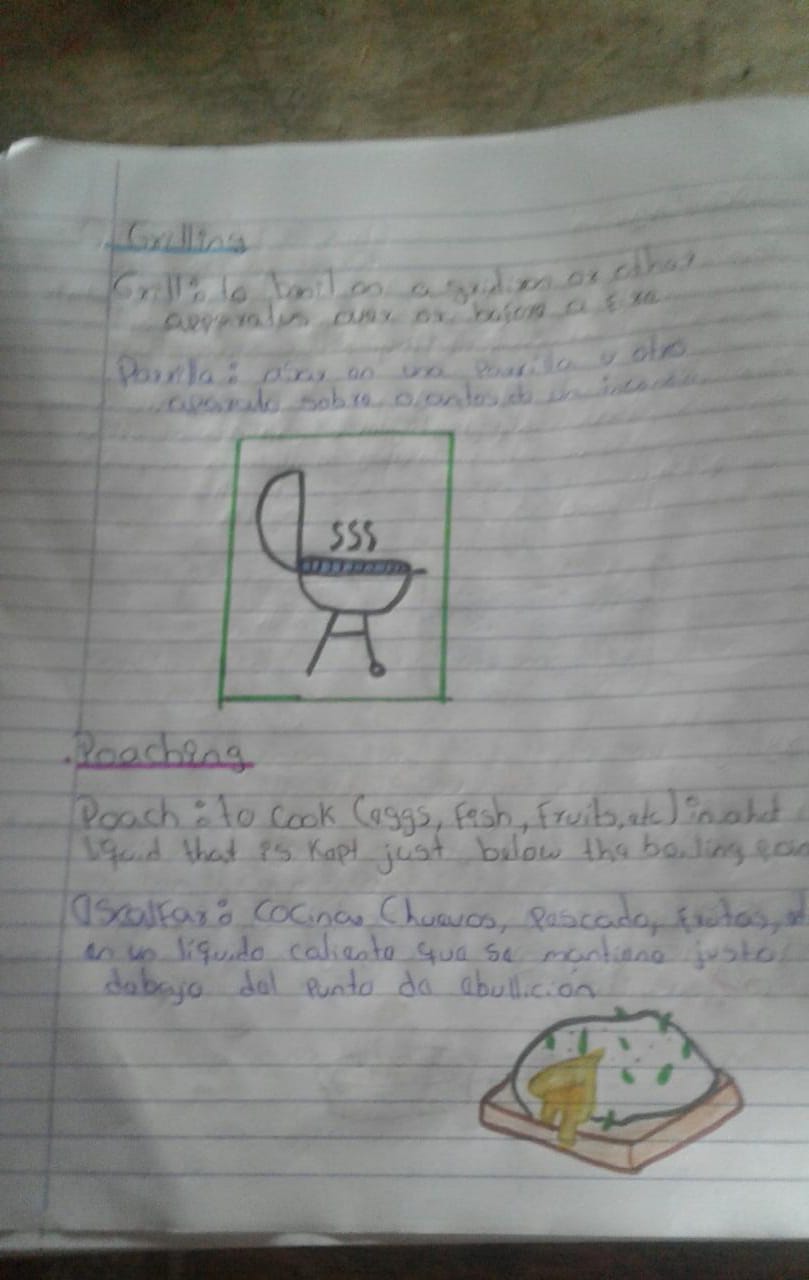 Grilling
Grill: to broil on a gridiron or other
apparatus over or before a fire
Parrilla: asar en una parrilla u otro
aparato sobre o antes de un
SSS
Poaching
Poach: to cook (eggs, fish, fruits, etc) in a hot
liquid that is kept just below the boiling
Escalfar: cocinar (huevos, pescado, frutas,
en un líquido caliente que se mantiene justo
debajo del punto de ebullición